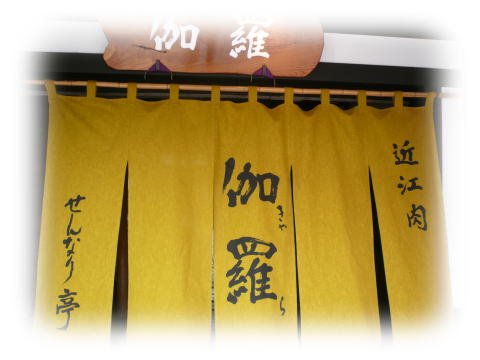 伽羅
近江肉
伽羅
きゃら
せんなり亭